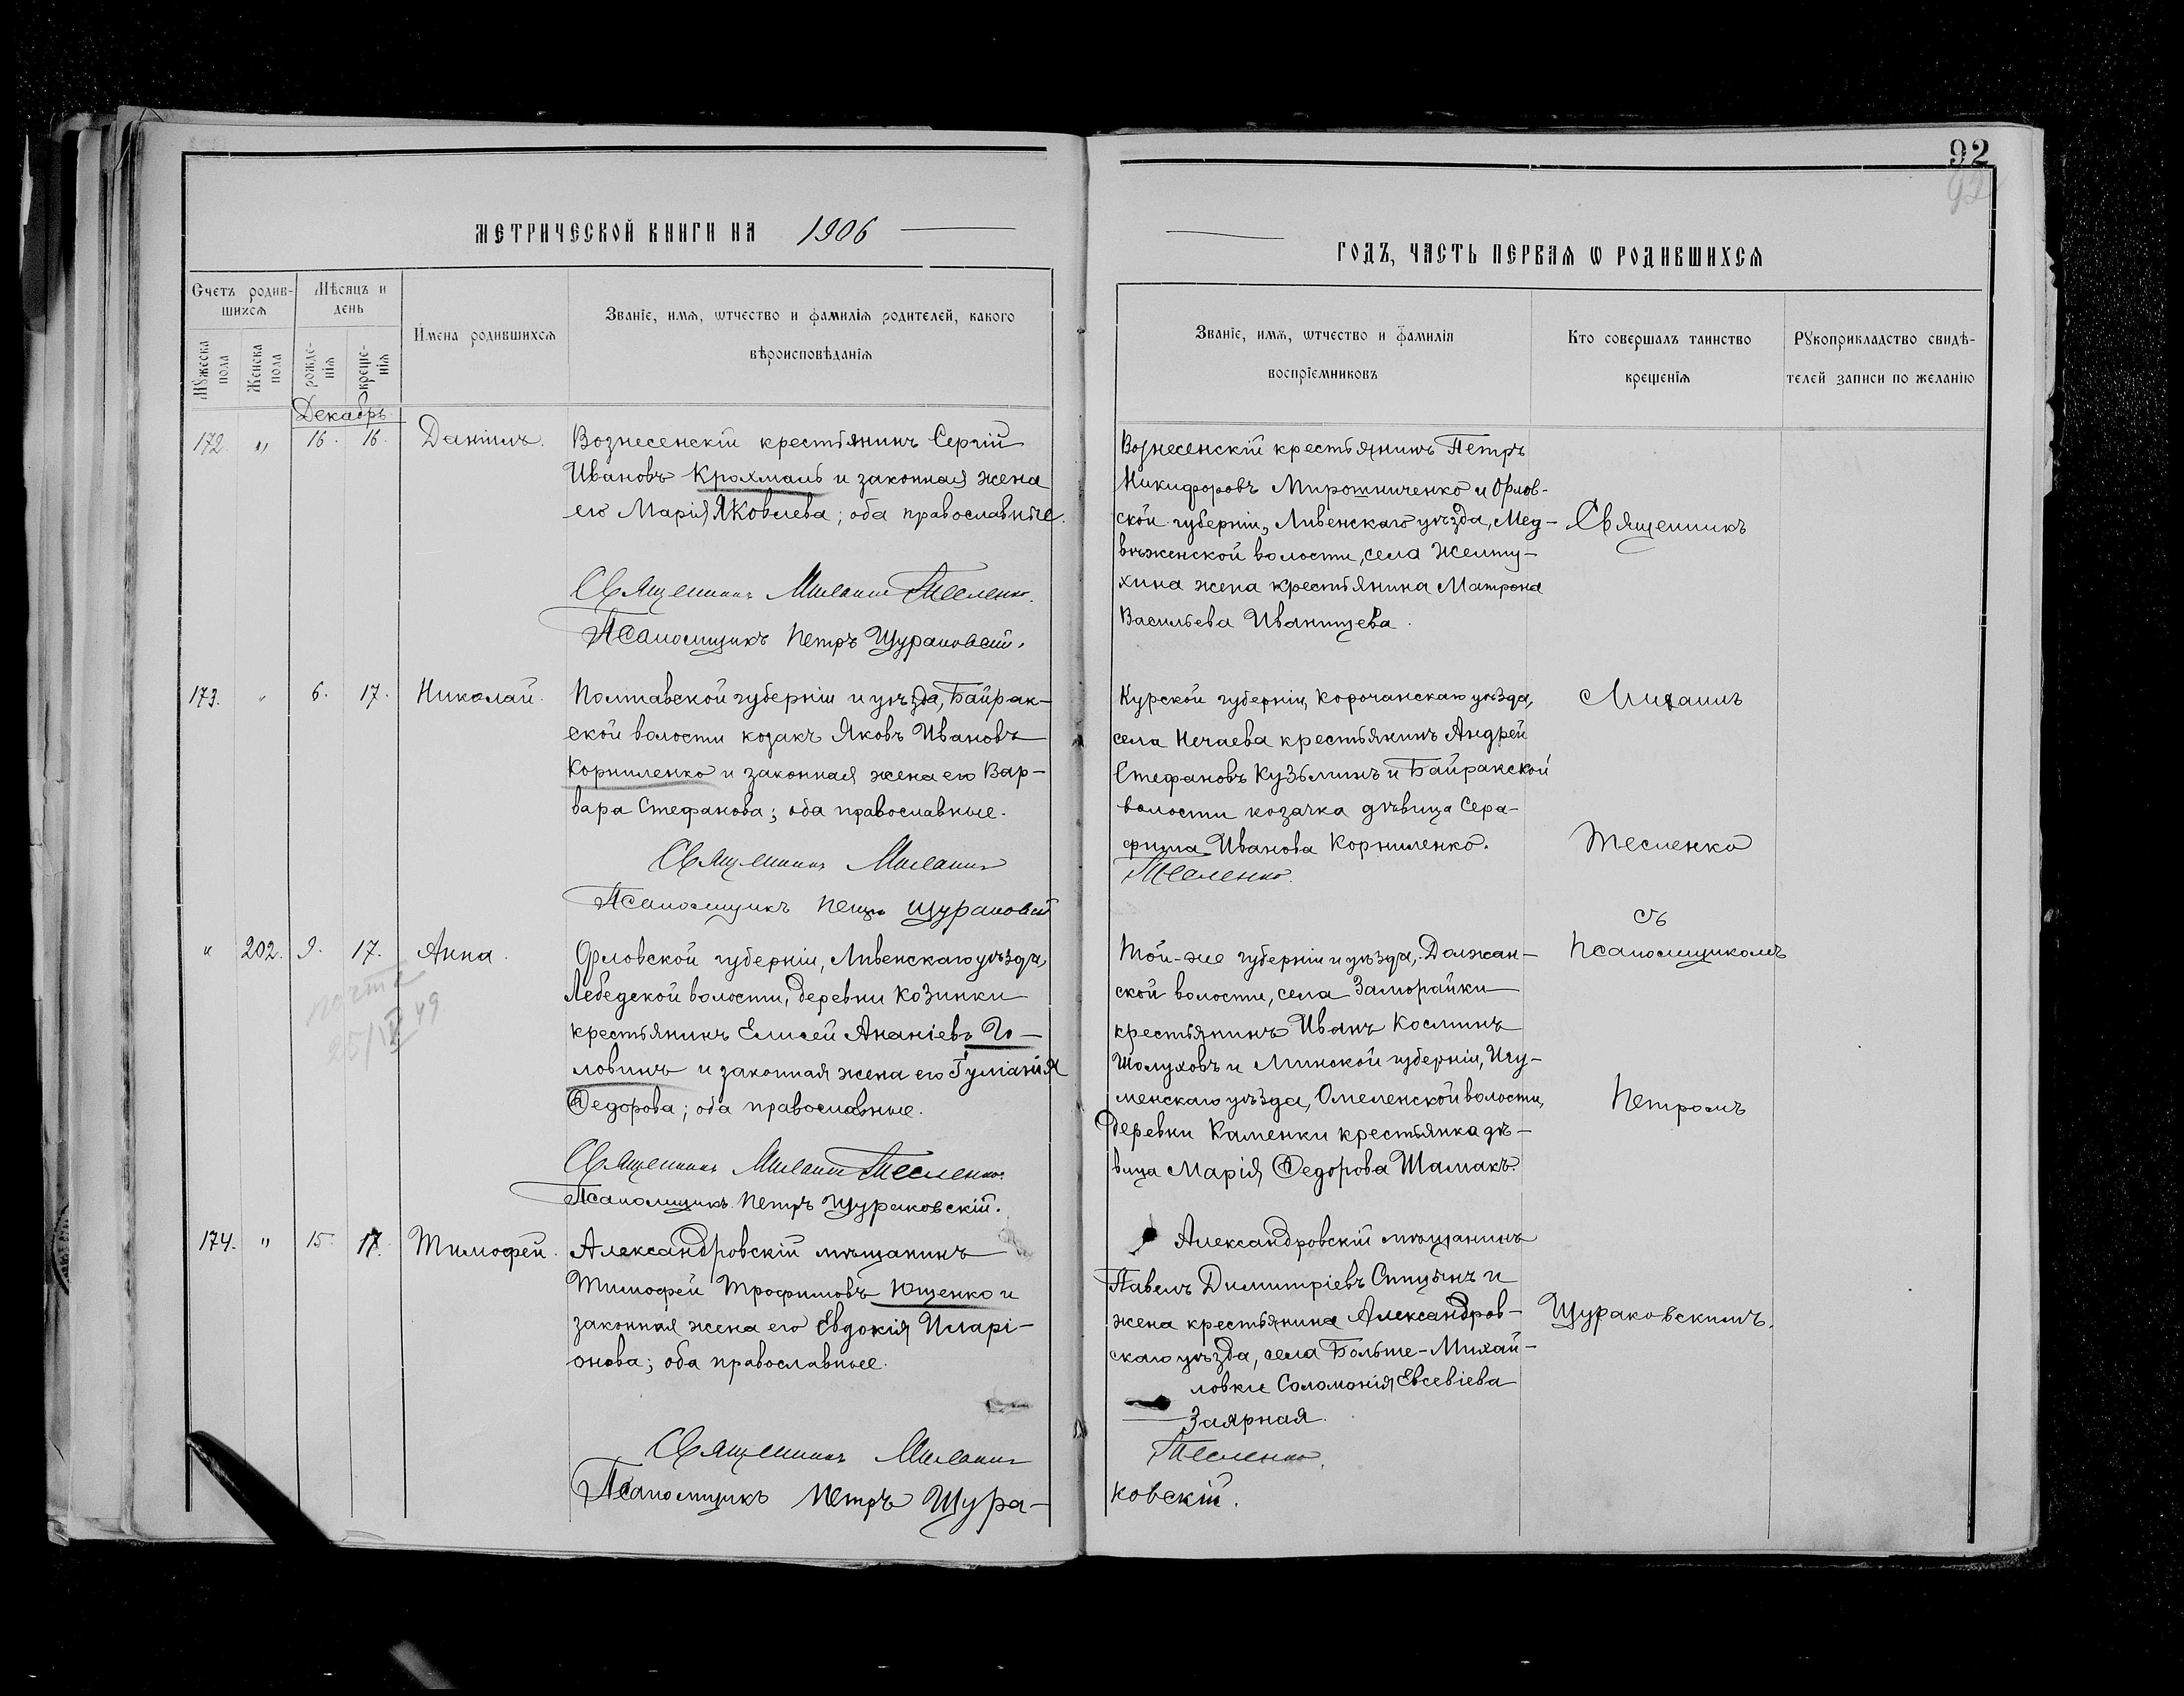 92
92
МЕТРИЧЕСКОЙ КНИГИ НА 1906
ГОДЪ, ЧАСТЬ ПЕРВАЯ Ѡ РОДИВШИХСЯ
Счетъ родив-
шихся
Мѣсяцъ и
день
Мужеска
пола
Женска
пола
рожде-
нія
креще-
нія
Имена родившихся
Званіе, имя, ѡтчество и фамилія родителей, какого
вѣроисповѣданія
Званіе, имя, ѡтчество и фамилія
воспріемниковъ
Кто совершалъ таинство
крещенія
Рукоприкладство свидѣ-
телей записи по желанію
Декабрь
172. " 16. 16. Даніилъ.
Вознесенскій крестьянинъ Сергій
Ивановъ Крохмаль и законная жена
его Марія Яковлева; оба православные.
Священникъ Михаилъ Тесленко.
Псаломщикъ Петръ Щураковскій.
Вознесенскій крестьянинъ Петръ
Никифоровъ Мирошниченко и Орлов-
ской губерніи, Ливенскаго уѣзда, Мед-
вѣженской волости, села Желту-
хина жена крестьянина Матрона
Васильева Иванищева.
Священникъ
173. " 6. 17. Николай.
Полтавской губерніи и уѣзда, Байрак-
ской волости козакъ Яковъ Ивановъ
Корниленко и законная жена его Вар-
вара Стефанова; оба православные.
Священникъ Михаилъ
Псаломщикъ Петръ Щураковскій
Курской губерніи, Корочанскаго уѣзда,
села Нечаева крестьянинъ Андрей
Стефановъ Кузьминъ и Байракской
волости козачка дѣвица Сера-
фима Иванова Корниленко.
Тесленко.
Михаилъ
Тесленко
съ
" 202. 9. 17. Анна.
25/IV 49
Орловской губерніи, Ливенскаго уѣзда,
Лебедской волости, деревни Козинки
крестьянинъ Елисей Ананіевъ Го-
ловинъ и законная жена его Гуліанія
Ѳедорова; оба православные.
Священникъ Михаилъ Тесленко.
Псаломщикъ Петръ Щураковскій.
Той-же губерніи и уѣзда, Должан-
ской волости, села Заморайки
крестьянинъ Иванъ Косминъ
Шолуховъ и Минской губерніи, Игу-
менскаго уѣзда, Омеленской волости,
деревни Каменки крестьянка дѣ-
вица Марія Ѳедорова Шамакъ.
Псаломщикомъ
Петромъ
174. " 15. 17. Тимофей.
Александровскій мѣщанинъ
Тимофей Трофимовъ Ющенко и
законная жена его Евдокія Иларі-
онова; оба православные.
Священникъ Михаилъ
Псаломщикъ Петръ Щура-
Александровскій мѣщанинъ
Павелъ Димитріевъ Спицынъ и
жена крестьянина Александров-
скаго уѣзда, села Больше-Михай-
ловки Соломонія Евсевіева
Заярная.
Тесленко.
ковскій.
Щураковскимъ.